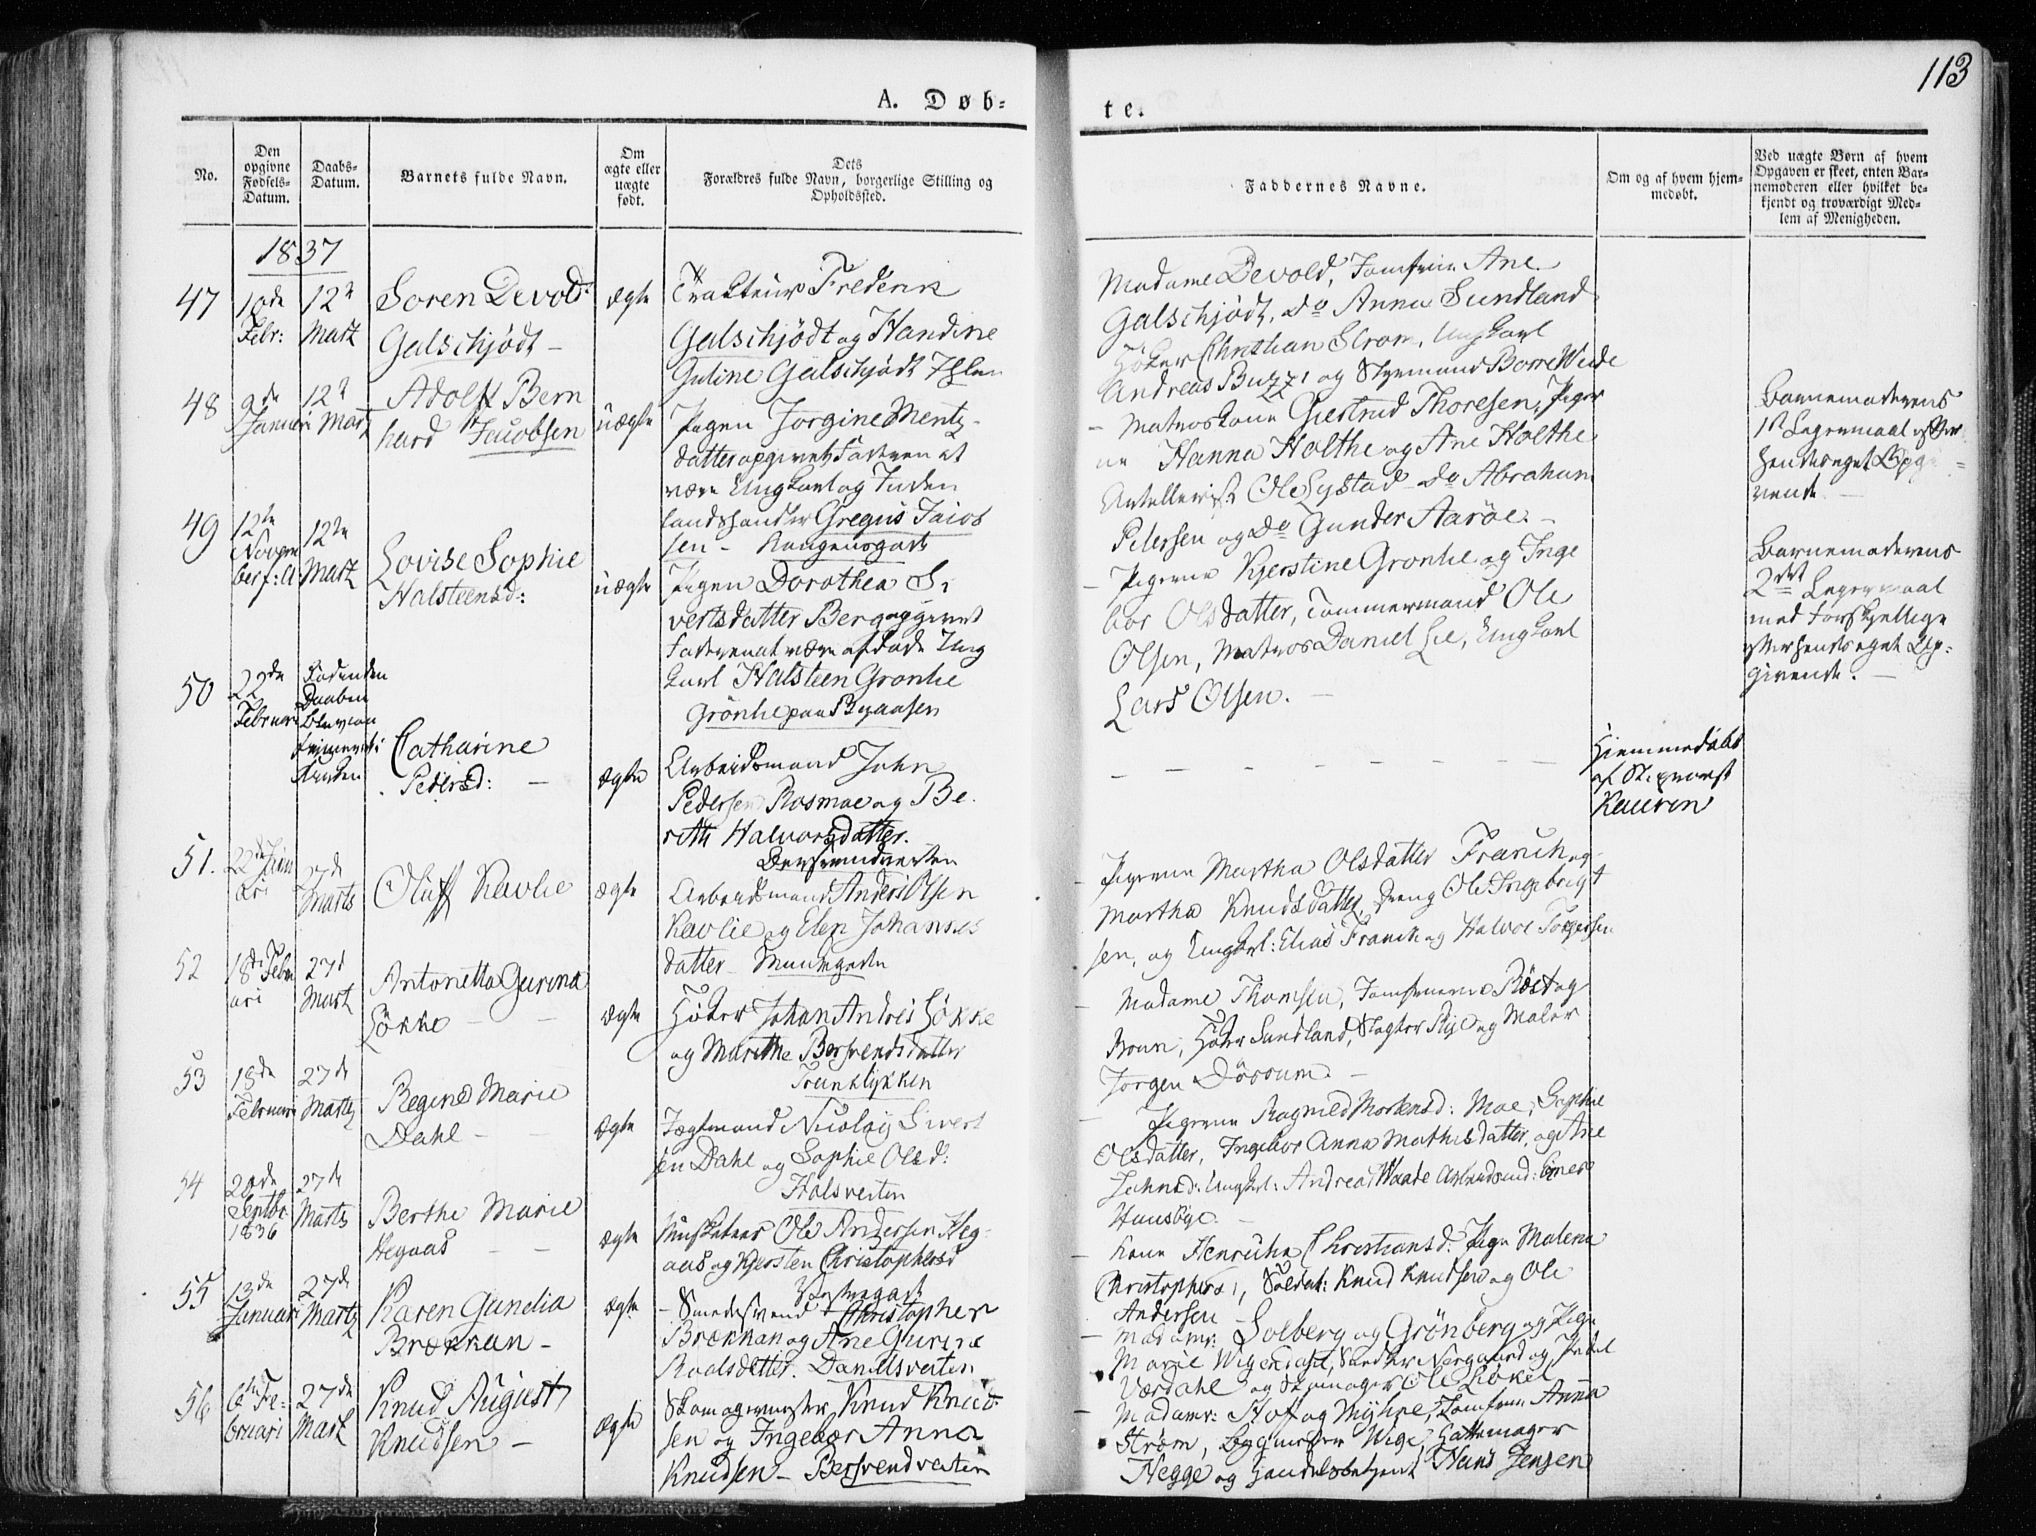 113
A. Døb-
te.
No.
Den opgivne Fødsels-Datum.
Daabs-Datum.
Barnets fulde Navn.
Om ægte eller uægte født.
Dets Forældres fulde Navn, borgerlige Stilling og Opholdssted.
Faddernes Navne.
Om og af hvem hjem-
medøbt.
Ved uægte Børn af hvem
Opgaven er skeet, enten Bar-
nemoderen eller hvilket be-
kjendt og troværdigt Med-
lem af Menigheden.
1837
47
10de
Febr:
12te
Martz
Soren Devold
Galschjödt –
Ægte
Tracteur Frederik
Galschjödt og Handine
Guline Galschjödt Ihlen
Madame Devold, Jomfrue Ane
Galschjödt, do Anna Sundland
Höker Christian Strom, Ungkarl
Andreas Buzzi og Styrmand Borre Wede
48
9de
Januari
12te
Martz
Adolf Bern
hard Jacobsen
uægte
Pigen Jorgine Mentz-
datter opgivet Faderen at
være Ungkarl og Inden
landshandler Gregus Jacob
sen –
– Matroskone Giertrud Thoresen, Piger
ne Hanna Holthe og Ane Holthe
Artillerist Ole Systad do Abraham
Petersen og do Gunder Aaröe. –
Barnemoderens
1ste Leiermaal efter
hendes eget Opgi=
vende. –
49
12te
Novem
ber f: A
12te
Martz
Lovise Sophie
Halsteensd:
uægte
Pigen Dorothea Si
vertsdatter Berg opgivet
Faderen at være afdöde Ung
karl Halsteen Gronlie
Grönlie paa Byaasen
– Pigerne Kjerstine Gronlie og Inge
bor Olsdatter, Tömmermand Ole
Olsen, Matros Daniel Lie, Ungkarl
Lars Olsen. –
Barnemoderens
2det Leiermaal
med forskjellige
efter hendes eget Op-
givende. –
50
22de
Februari
Daaben
Kirken
Catharine
Pedersd: –
Ægte
Arbeidsmand John
Pedersen Rosmoe og Be
rith Halvorsdatter.
Hjemmedöbt
af Stiprovst
Kauren
51.
22de Janu
ari
27de
Marts
Oluff Kavlie
Ægte
Arbeidsmand Anders Olsen
Kavlie og Elen Johannes
datter
– Pigerne Martha Olsdatter Franck og
Martha Knudsdatter, Dreng Ole Ingebrigt
sen, og Ungkrl: Elias Franck og Halvor Torgersen
52
18de Febru
ari
27d
Mart
Antonetta Gurina
Lökke – –
Ægte
Höker Johan Andreis Lökke
og Marethe Bersvendsdatter
– Madame Thomsen, Jomfruerne Röst og
Brun, Höker Sundland, Slagter Stye og Maler
Jorgen Dörrum. –
53
18de
Februari
27de
Marts
Regine Marie
Dahl – –
Ægte
Jægtmand Nicolay Sivert
sen Dahl og Sophie Olsd:
– Pigerne Ragnild Mortensd: Moe, Sophie
Olsdatter, Ingebor Anna Mathisdatter, og Ane
Johnsd: Ungkrl: Andreas Waade
54
20de
Septbr
1836
27de
Marts
Berthe Marie
Hegaas – –
Ægte
Musketeer Ole Andersen Heg-
aas og Kjersten Christophersd
– Kone Henricha Christiansd: Pige Malena
Christophersd, Soldat: Knud Knudsen og Ole
Andersen
55
13de
Januari
27de
Martz
Karen Gundia
Brækkan –
Ægte
– Smedesvend Christopher
Brækkan og Ane Gurine
Roalsdatter. Danielsveiten
– Madame: Solberg og Grönberg og Pige
Værdahl og Skomager Ole Lökke
56
6te Fe-
bruari
27de
Mart
Knud August
Knudsen –
Ægte
Skomagermester Knud Knud
sen og Ingebor Anna
Knudsen – Bersvendveiten
– Madame: Hof og Myhre, Jomfrue Anna
Ström, Bogmester Wige, Hattemager
Hegge og Handelsbetjent Hans Jensen